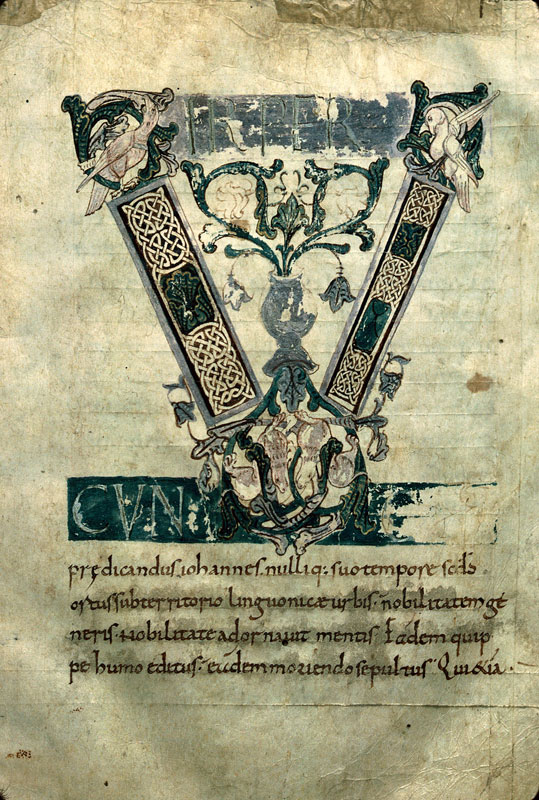 V
CVN
prędicandus iohannes. nulliq; suo tempore scds
ortus sub territorio linguonicæ urbis. nobilitatem ge
neris. nobilitate adornauit mentis. Eadem quip
pe humo editus. eademmoriendo sepultus. Qui &ia